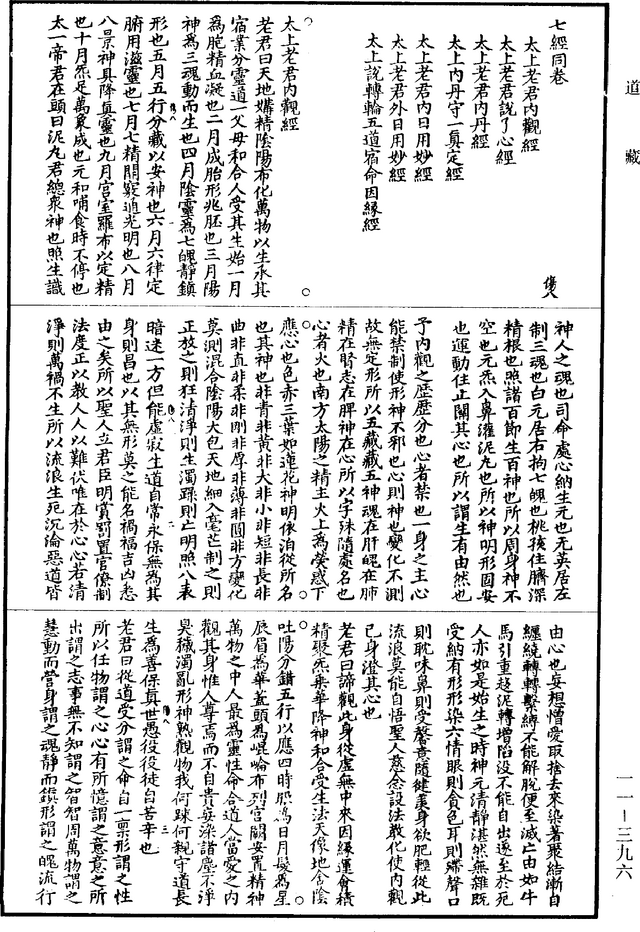 道藏
七經同卷
太上老君內觀經
太上老君說了心經
太上老君內丹經
太上內丹守一真定經
太上老君內日用妙經
太上老君外日用妙經
太上說轉輪五道宿命因緣經
傷八
太上老君內觀經
老君曰天地媾精陰陽布化萬物以生承其
宿業分靈道一父母和合人受其生始一月
為胞精血凝也二月成胎形兆胚也三月陽
神為三魂動而生也四月陰靈為七魄靜鎮
形也五月五行分藏以安神也六月六律定
腑用滋靈也七月七精開竅通光明也八月
八景神具降真靈也九月宮室羅布以定精
也十月炁足萬象成也元和哺食時不停也
太一帝君在頭曰泥丸君總衆神也照生識
神人之魂也司命處心納生元也无英居左
制三魂也白元居右拘七魄也桃孩住臍深
精根也照諸百節生百神也所以周身神不
空也元炁入鼻灌泥丸也所以神明形固安
也運動住止關其心也所以謂生有由然也
予內觀之歷歷分也心者禁也一身之主心
能禁制使形神不邪也心則神也變化不測
故無定形所以五藏藏五神魂在肝魄在肺
精在腎志在脾神在心所以字殊隨處名也
心者火也南方太陽之精主火上為熒惑下
應心也色赤三葉如蓮花神明依泊從所名
也其神也非青非黃非大非小非短非長非
曲非直非柔非剛非厚非薄非圓非方變化
莫測混合陰陽大包天地細入毫芒制之則
正放之則狂清淨則生濁躁則亡明照八表
暗迷一方但能虛寂生道自常永保無為其
身則昌也以其無形莫之能名禍福吉凶悉
由之矣所以聖人立君臣明賞罰置官僚制
法度正以教人人以難伏唯在於心心若清
淨則萬禍不生所以流浪生死沉淪惡道皆
由心也妄想憎愛取捨去來染著聚結漸自
纏繞轉轉繫縛不能解脫便至滅亡由如牛
馬引重趍泥轉增陷沒不能自出遂至於死
人亦如是始生之時神元清靜湛然無雜既
受納有形形染六情眼則貪色耳則滯聲口
則耽味鼻則受馨意隨健羨身欲肥輕從此
流浪莫能自悟聖人慈念設法教化使內觀
己身澄其心也
老君曰諦觀此身從虛無中來因緣運會積
精聚炁乘華降神和合受生法天像地含陰
吐陽分錯五行以應四時眼為日月髮為星
辰眉為華蓋頭為崐崘布列宮闕安置精神
萬物之中人最為靈性命合道人當愛之內
觀其身惟人尊焉而不自貴妄染諸塵不淨
臭穢濁亂形神熟觀物我何踈何親守道長
生為善保真世愚役役徒自苦辛也
老君曰從道受分謂之命自一稟形謂之性
所以任物謂之心心有所憶謂之意意之所
出謂之志事無不知謂之智智周萬物謂之
慧動而營身謂之魂靜而鎮形謂之魄流行
一一-三九六